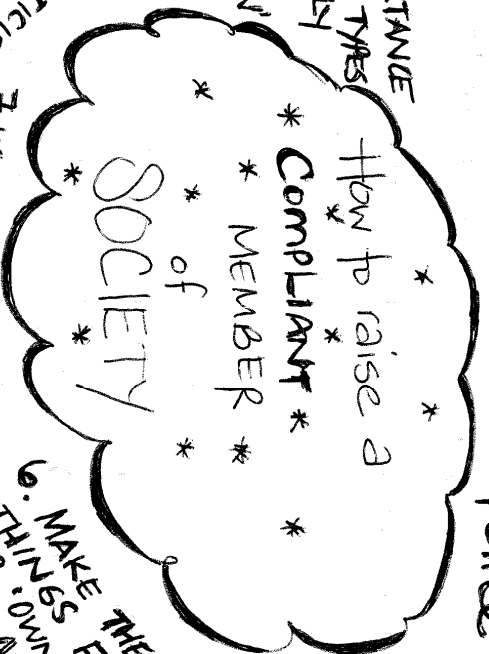 How to raise a
COMPLIANT
MEMBER
of
SOCIETY
TANCE
TYPES
6. MAKE THE
THINGS
OWN